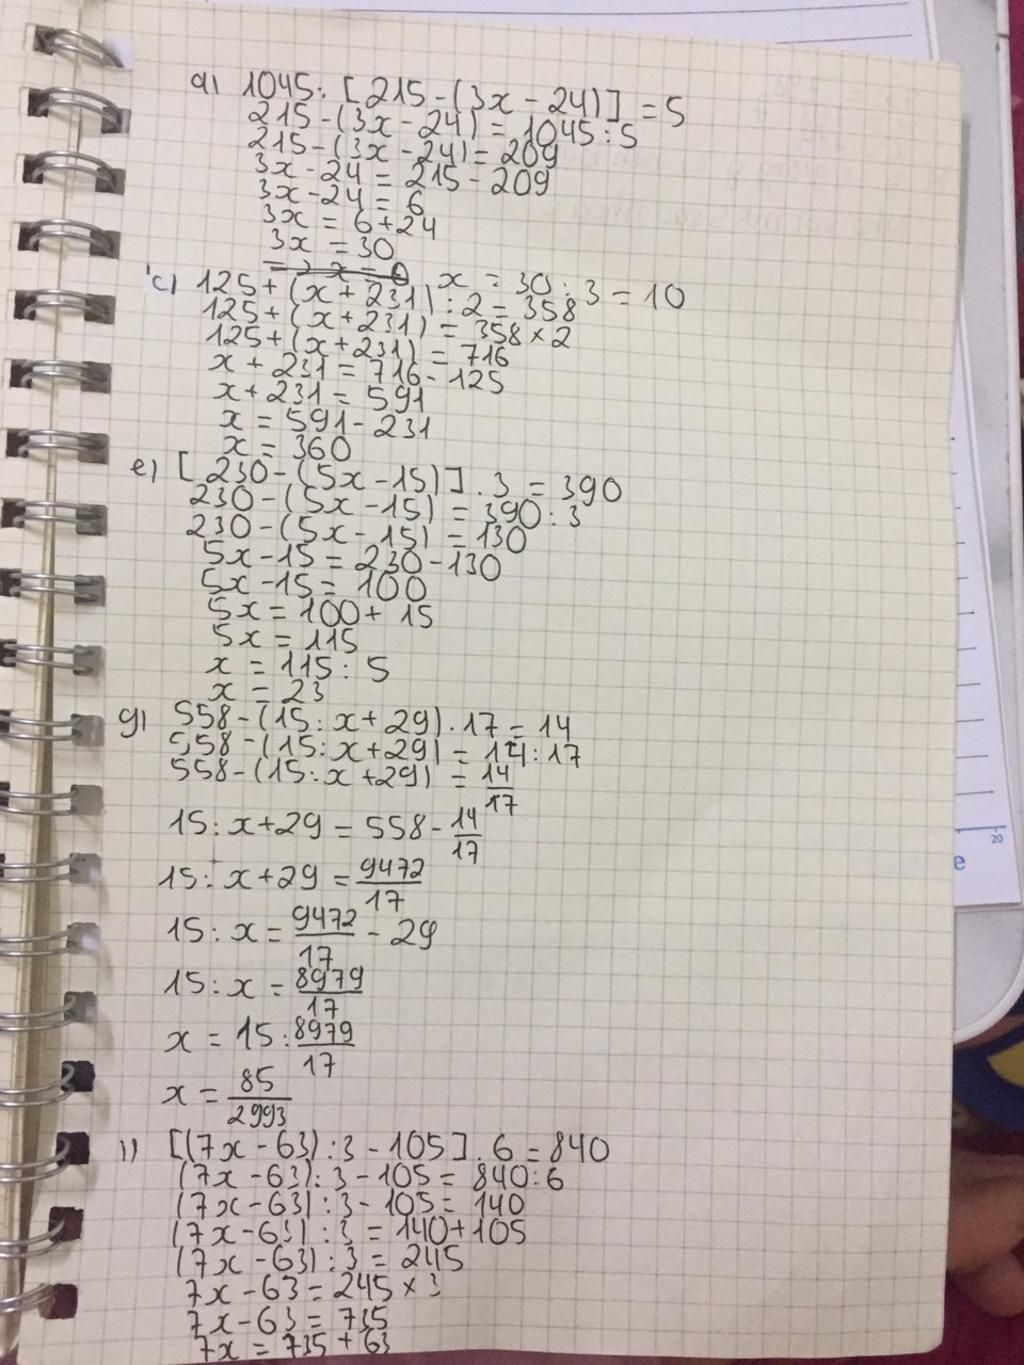 a) 1045: [215-(3x-24)] = 5
215-(3x-24) = 1045:5
215-(3x-24) = 209
3x-24 = 215-209
3x-24 = 6
3x = 6+24
3x = 30
x = 30:3 = 10
c) 125+(x+231):2 = 358
125+(x+231) = 358×2
125+(x+231) = 716
x+231 = 716-125
x+231 = 591
x = 591-231
x = 360
e) [230-(5x-15)].3 = 390
230-(5x-15) = 390:3
230-(5x-15) = 130
5x-15 = 230-130
5x-15 = 100
5x = 100+15
5x = 115
x = 115:5
x = 23
g) 558-(15:x+29).17 = 14
558-(15:x+29) = 14:17
558-(15:x+29) = 14/17
15:x+29 = 558-14/17
15:x+29 = 9472/17
15:x = 9472/17 - 29
15:x = 8979/17
x = 15:8979/17
x = 85/2993
i) [(7x-63):3-105].6 = 840
(7x-63):3-105 = 840:6
(7x-63):3-105 = 140
(7x-63):3 = 140+105
(7x-63):3 = 245
7x-63 = 245×3
7x-63 = 735
7x = 735+63
20
e